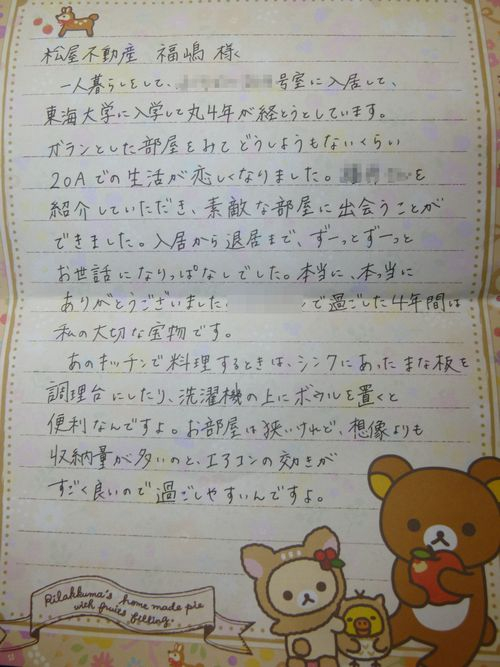 松屋不動産 福嶋 様
一人暮らしをして、 号室に入居して、
東海大学に入学して丸4年が経とうとしています。
ガランとした部屋をみてどうしようもないくらい
20Aでの生活が恋しくなりました。 を
紹介していただき、素敵な部屋に出会うことが
できました。入居から退居まで、ずーっとずーっと
お世話になりっぱなしでした。本当に、本っ当に
ありがとうございました で過ごした4年間は
私の大切な宝物です。
あのキッチンで料理するときは、シンクにあったまな板を
調理台にしたり、洗濯機の上にボウルを置くと
便利なんですよ。お部屋は狭いけれど、想像よりも
収納量が多いのと、エアコンの効きが
すごく良いので過ごしやすいんですよ。
Rilakkuma's home made pie
with fruits filling.